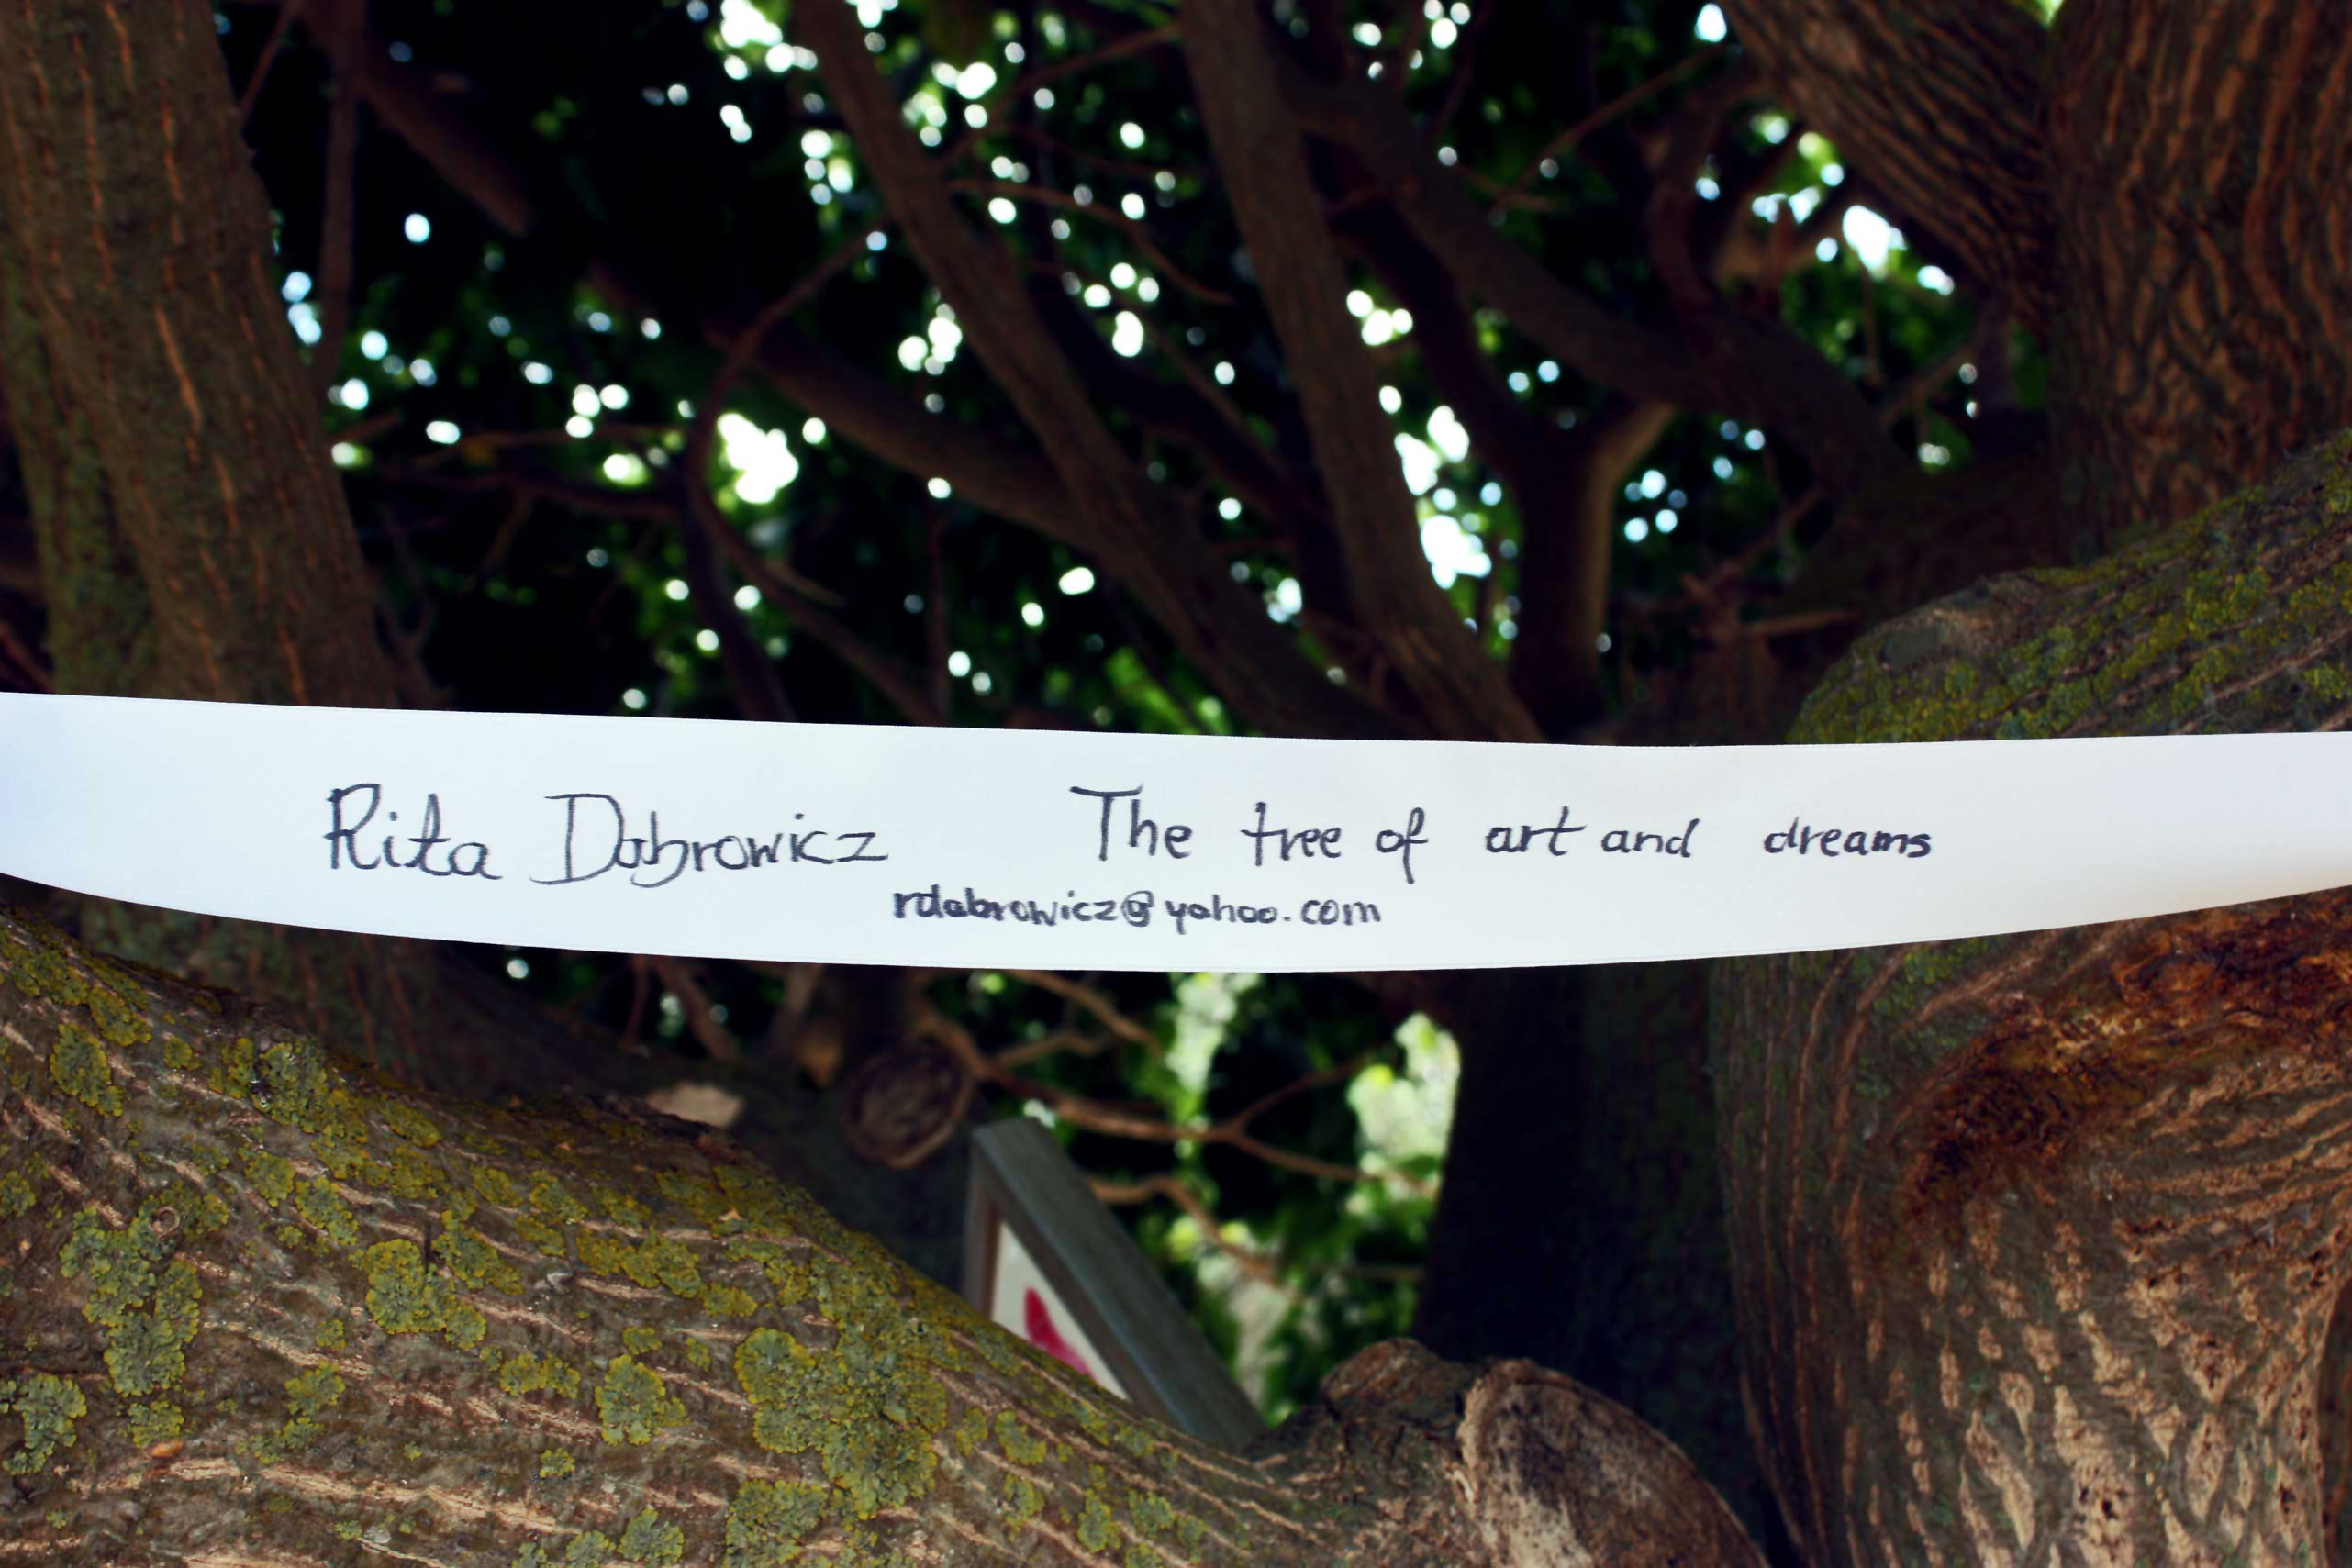 Rita Dabrowicz The tree of art and dreams
rdabrowicz@yahoo.com